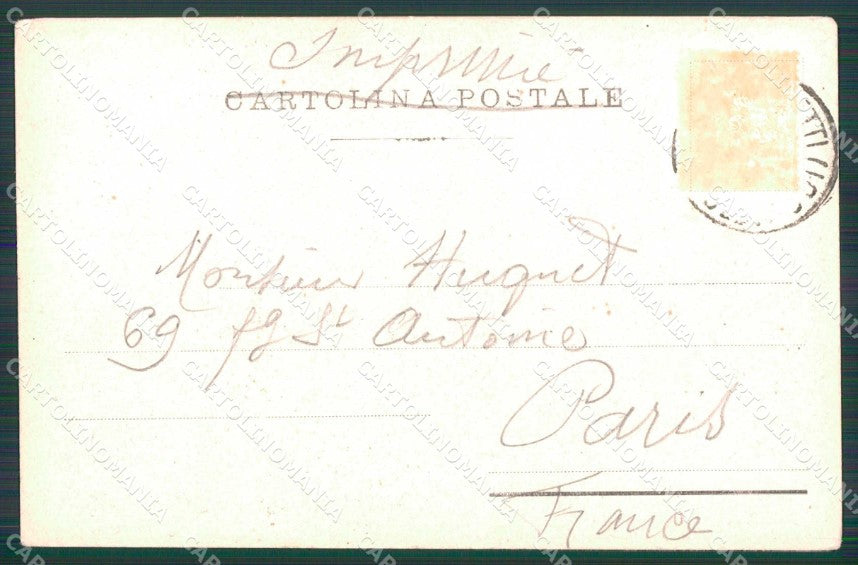 Imprimé
CARTOLINA POSTALE
Monsieur Huguet
69 fg St Antoine
Paris
France
CARTOLINOMANIA